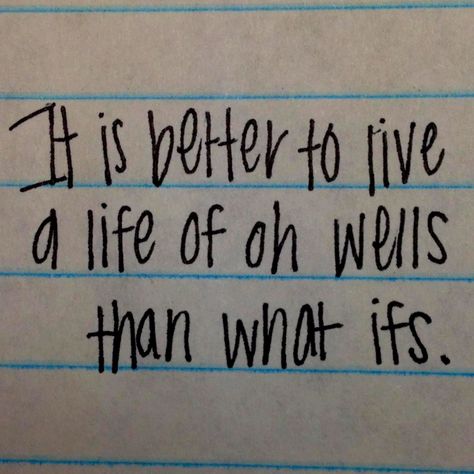 It is better to live
a life of oh wells
than what ifs.